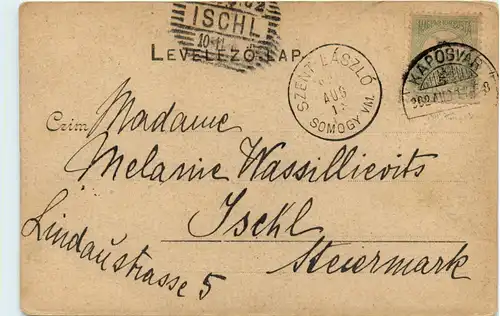 ISCHL
10-11
LEVELEZŐ-LAP.
SZENT LÁSZLÓ
AUG
SOMOGY VM.
KAPOSVÁR
Czim:
Madame
Melanie Wassillievits
Ischl
Lindaustrasse 5
Steiermark